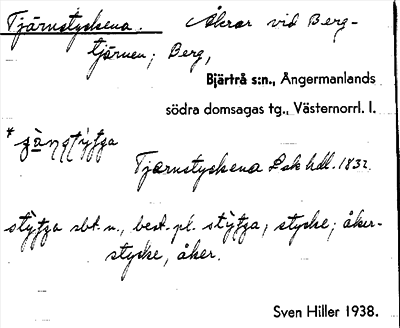 Tjärnstyckena. Åkrar vid Berg-
tjärnen; Berg,
Bjärtrå s:n., Ångermanlands
södra domsagas tg., Västernorrl. l.
Tjærnstyckena Lsk hdl. 1832.
sbt. n., best. pl. stycke; åker-
stycke, åker.
Sven Hiller 1938.